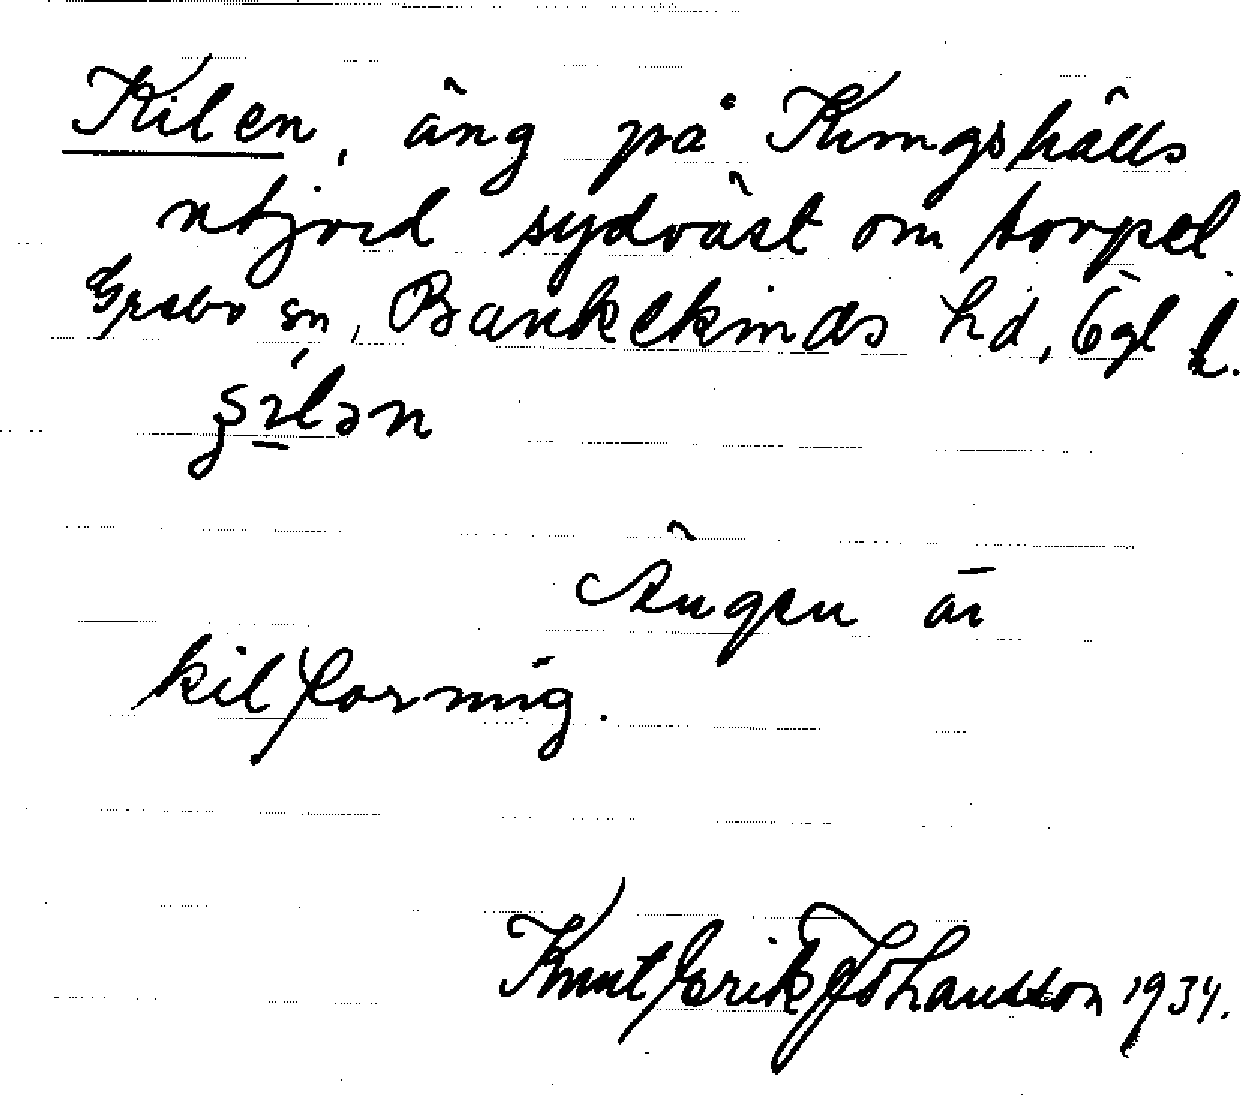 Kilen, äng på Kungshälls
utjord sydväst om torpet
Grebo sn, Bankekinds hd, Ögl l.
Ängen är
kilformig.
Knut Erik Johansson 1934.